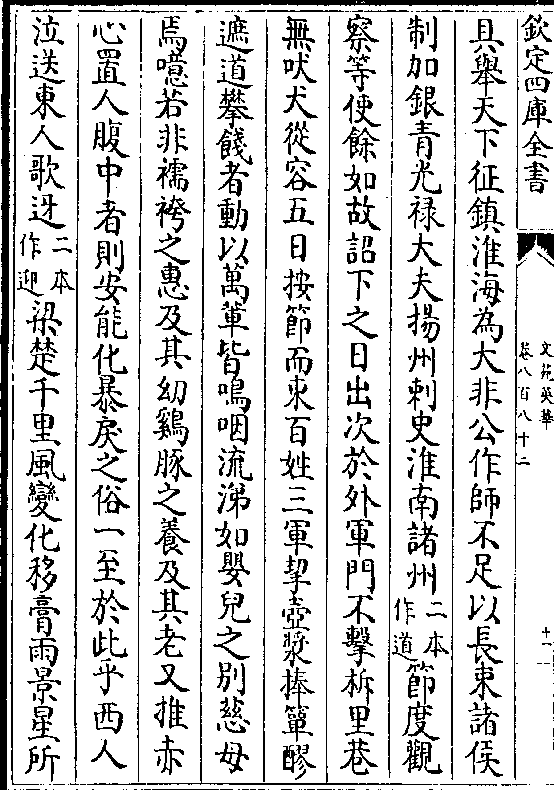 欽定四庫全書
文苑英華
卷八百八十二
十一
具舉天下征鎮淮海為大非公作師不足以長東諸侯
制加銀青光禄大夫揚州刺史淮南諸州二本作道節度觀
察等使餘如故詔下之日出次於外軍門不擊柝里巷
無吠犬從容五日按節而東百姓三軍挈壺漿捧簞醪
遮道攀餞者動以萬軰皆鳴咽流涕如嬰兒之别慈母
焉噫若非襦袴之惠及其幼鷄豚之養及其老又推赤
心置人腹中者則安能化暴戾之俗一至於此乎西人
泣送東人歌迓二本作迎梁楚千里風變化移膏雨景星所